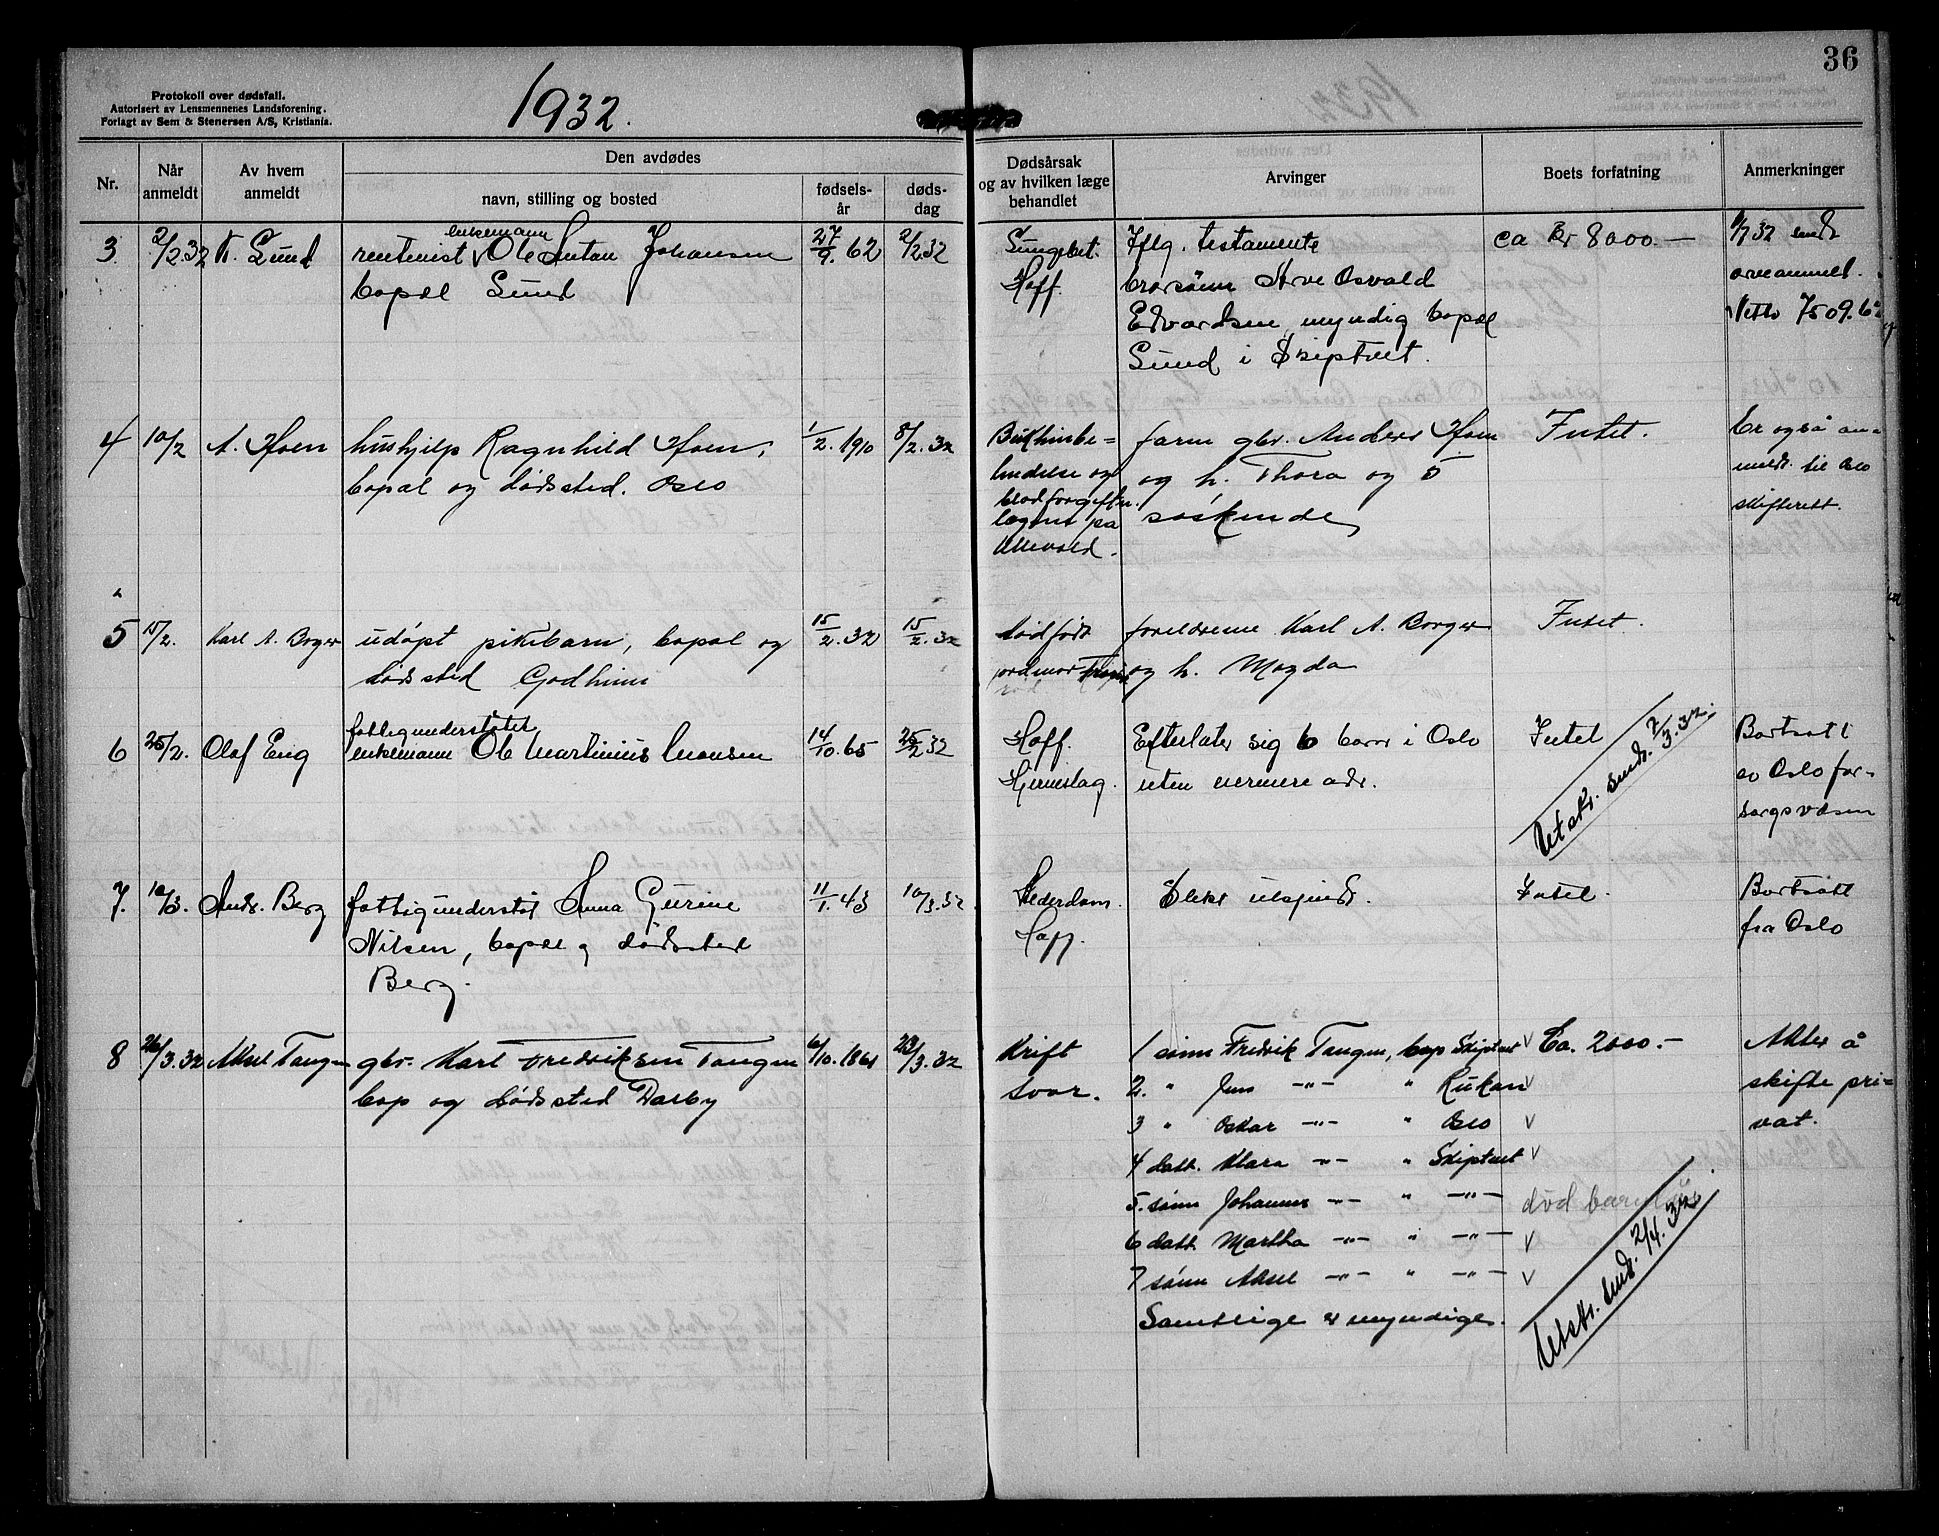 36
Protokoll over dødsfall.
Autorisert av Lensmennenes Landsforening.
Forlagt av Sem & Stenersen A/S, Kristiania.
1932.
Nr.
Når anmeldt
Av hvem anmeldt
Den avdødes
navn, stilling og bosted
fødselsår
dødsdag
Dødsårsak og av hvilken læge behandlet
Arvinger
Boets forfatning
Anmerkninger
3 2/2.32 Sund rentenist enkemann Ole Antan Johansen 27/9. 62 2/2.32 Hoff. Iflg. testamente ca Kr 8000.—
bopæl Sund
brorsønn Arve Osvald
Edvardsen, myndig bopæl
Sund i Skiptvet.
arveanmeld.
Netto 7509.6
4 10/2 A. Hoen hushjelp Ragnhild Hoen, 1/2. 1910 8/2. 32 farm gbr. Anders Hoen Intet. Er også an-
bopæl og dødssted. Oslo
og h. Thora og 5
søskende,
blodforgiftn.
lægene på
Ullevold.
meldt til Oslo
skifterett.
5 15/2. Karl A. Borger udøpt pikebarn, bopæl og 15/2. 32 15/2. 32 dødfødt foreldrene Karl A. Borger Intet.
dødssted Godheim
jordmor
og h. Magda
6 25/2. Olaf Eng fattigunderstøtet enkemann Ole Martinius 14/10. 65 25/2 32 Hoff. Hjerneslag. Efterlater sig 6 barn i Oslo Intet Bortsatt
uten nermere adr.
Utskr. sendt. 7/3.32.
av Oslo for-
sorgsvæsen
7. 10/3. Ands. Berg fattigunderstøt Anna Gurine 11/1. 43 10/3.32. Alderdom. Hoff. Slekt uksjendt. Intet. Bortsatt
Nilsen, bopæl og dødssted
Berg.
fra Oslo
8 26/3.32 Aksel Tangen gbr. Karl Fredriksen Tangen 6/10. 1861 23/3.32 Kreft 1 sønn Fredrik Tangen, bop Skiptvet v Ca. 2000.— Akter å
bop og dødssted Dærby
svor.
2. " Jens —"— " Rukan v
skifte pri-
3 " Oskar —"— " Oslo v
vat.
4 datt. Klara —"— " Skiptvet v
5. sønn Johannes —"— " —"— død
6 datt. Martha —"— " —"— v
7 sønn Aksel —"— " —"— v
Samtlige er myndige.
Utskr. sendt. 2/4. 32